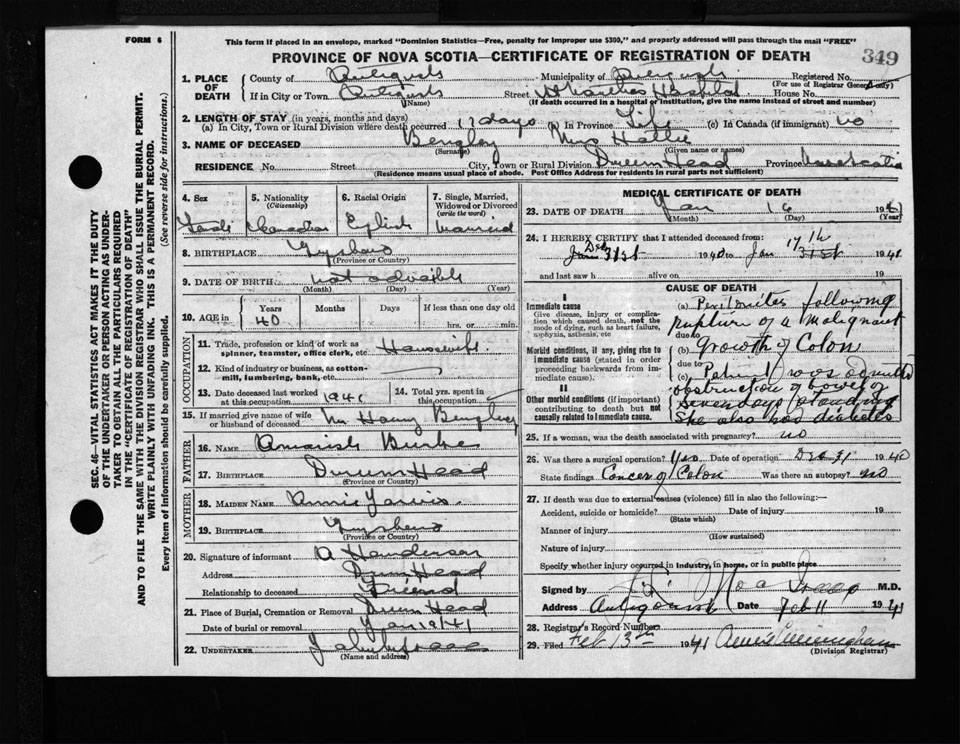 FORM 6
This form if placed in an envelope, marked "Dominion Statistics—Free, penalty for improper use $300," and properly addressed will pass through the mail "FREE"
PROVINCE OF NOVA SCOTIA—CERTIFICATE OF REGISTRATION OF DEATH
349
1. PLACE OF DEATH
County of
Municipality of
Registered No.
(For use of Registrar General only)
If in City or Town
(Name)
Street
Hospital
House No.
(If death occurred in a hospital or institution, give the name instead of street and number)
2. LENGTH OF STAY (in years, months and days)
(a) In City, Town or Rural Division where death occurred 17 days (b) In Province Life (c) In Canada (if immigrant) no
3. NAME OF DECEASED
(Surname)
Mrs
(Given name or names)
RESIDENCE No. Street City, Town or Rural Division Drum Head Province Nova Scotia
(Residence means usual place of abode. Post Office Address for residents in rural parts not sufficient)
4. Sex
5. Nationality (Citizenship) Canadian
6. Racial Origin English
7. Single, Married, Widowed or Divorced (write the word) married
8. BIRTHPLACE
(Province or Country)
9. DATE OF BIRTH not
(Month) (Day) (Year)
10. AGE in Years Months Days If less than one day old
40 hrs. or min.
OCCUPATION
11. Trade, profession or kind of work as spinner, teamster, office clerk, etc. Housewife
12. Kind of industry or business, as cotton-mill, lumbering, bank, etc.
13. Date deceased last worked at this occupation 1941
14. Total yrs. spent in this occupation
15. If married give name of wife or husband of deceased Mr
FATHER
16. NAME Burke
17. BIRTHPLACE Drum Head
(Province or Country)
MOTHER
18. MAIDEN NAME Annie
19. BIRTHPLACE
(Province or Country)
20. Signature of informant A Henderson
Address Drum Head
Relationship to deceased Friend
21. Place of Burial, Cremation or Removal Drum Head
Date of burial or removal Jan 19/41
22. UNDERTAKER
(Name and address)
MEDICAL CERTIFICATE OF DEATH
23. DATE OF DEATH Jan 16 1941
(Month) (Day) (Year)
24. I HEREBY CERTIFY that I attended deceased from:
Dec 31st 1940 to Jan 17th 1941
and last saw h alive on 19
CAUSE OF DEATH
I
Immediate cause
Give disease, injury or complication which caused death, not the mode of dying, such as heart failure, asphyxia, asthenia, etc
(a) Peritonitis following rupture of a malignant
due to
Morbid conditions, if any, giving rise to immediate cause (stated in order proceeding backwards from immediate cause).
(b) Growth of Colon
due to
(c) Patient was admitted
II
Other morbid conditions (if important) contributing to death but not causally related to immediate cause.
obstruction of bowel of
seven days standing
She also had diabetes
25. If a woman, was the death associated with pregnancy? no
26. Was there a surgical operation? Yes Date of operation Dec 31 1940
State findings Cancer of Colon Was there an autopsy? no
27. If death was due to external causes (violence) fill in also the following:—
Accident, suicide or homicide? Date of injury 19
(State which)
Manner of injury
(How sustained)
Nature of injury
Specify whether injury occurred in industry, in home, or in public place
Signed by M.D.
Address Antigonish Date Feb 11 1941
28. Registrar's Record Number
29. Filed Feb 13th 1941 Cunningham
(Division Registrar)
SEC. 46—VITAL STATISTICS ACT MAKES IT THE DUTY
OF THE UNDERTAKER OR PERSON ACTING AS UNDER-
TAKER TO OBTAIN ALL THE PARTICULARS REQUIRED
IN THE "CERTIFICATE OF REGISTRATION OF DEATH"
AND TO FILE THE SAME WITH THE DIVISION REGISTRAR WHO SHALL ISSUE THE BURIAL PERMIT.
WRITE PLAINLY WITH UNFADING INK. THIS IS A PERMANENT RECORD.
Every item of Information should be carefully supplied. (See reverse side for instructions.)